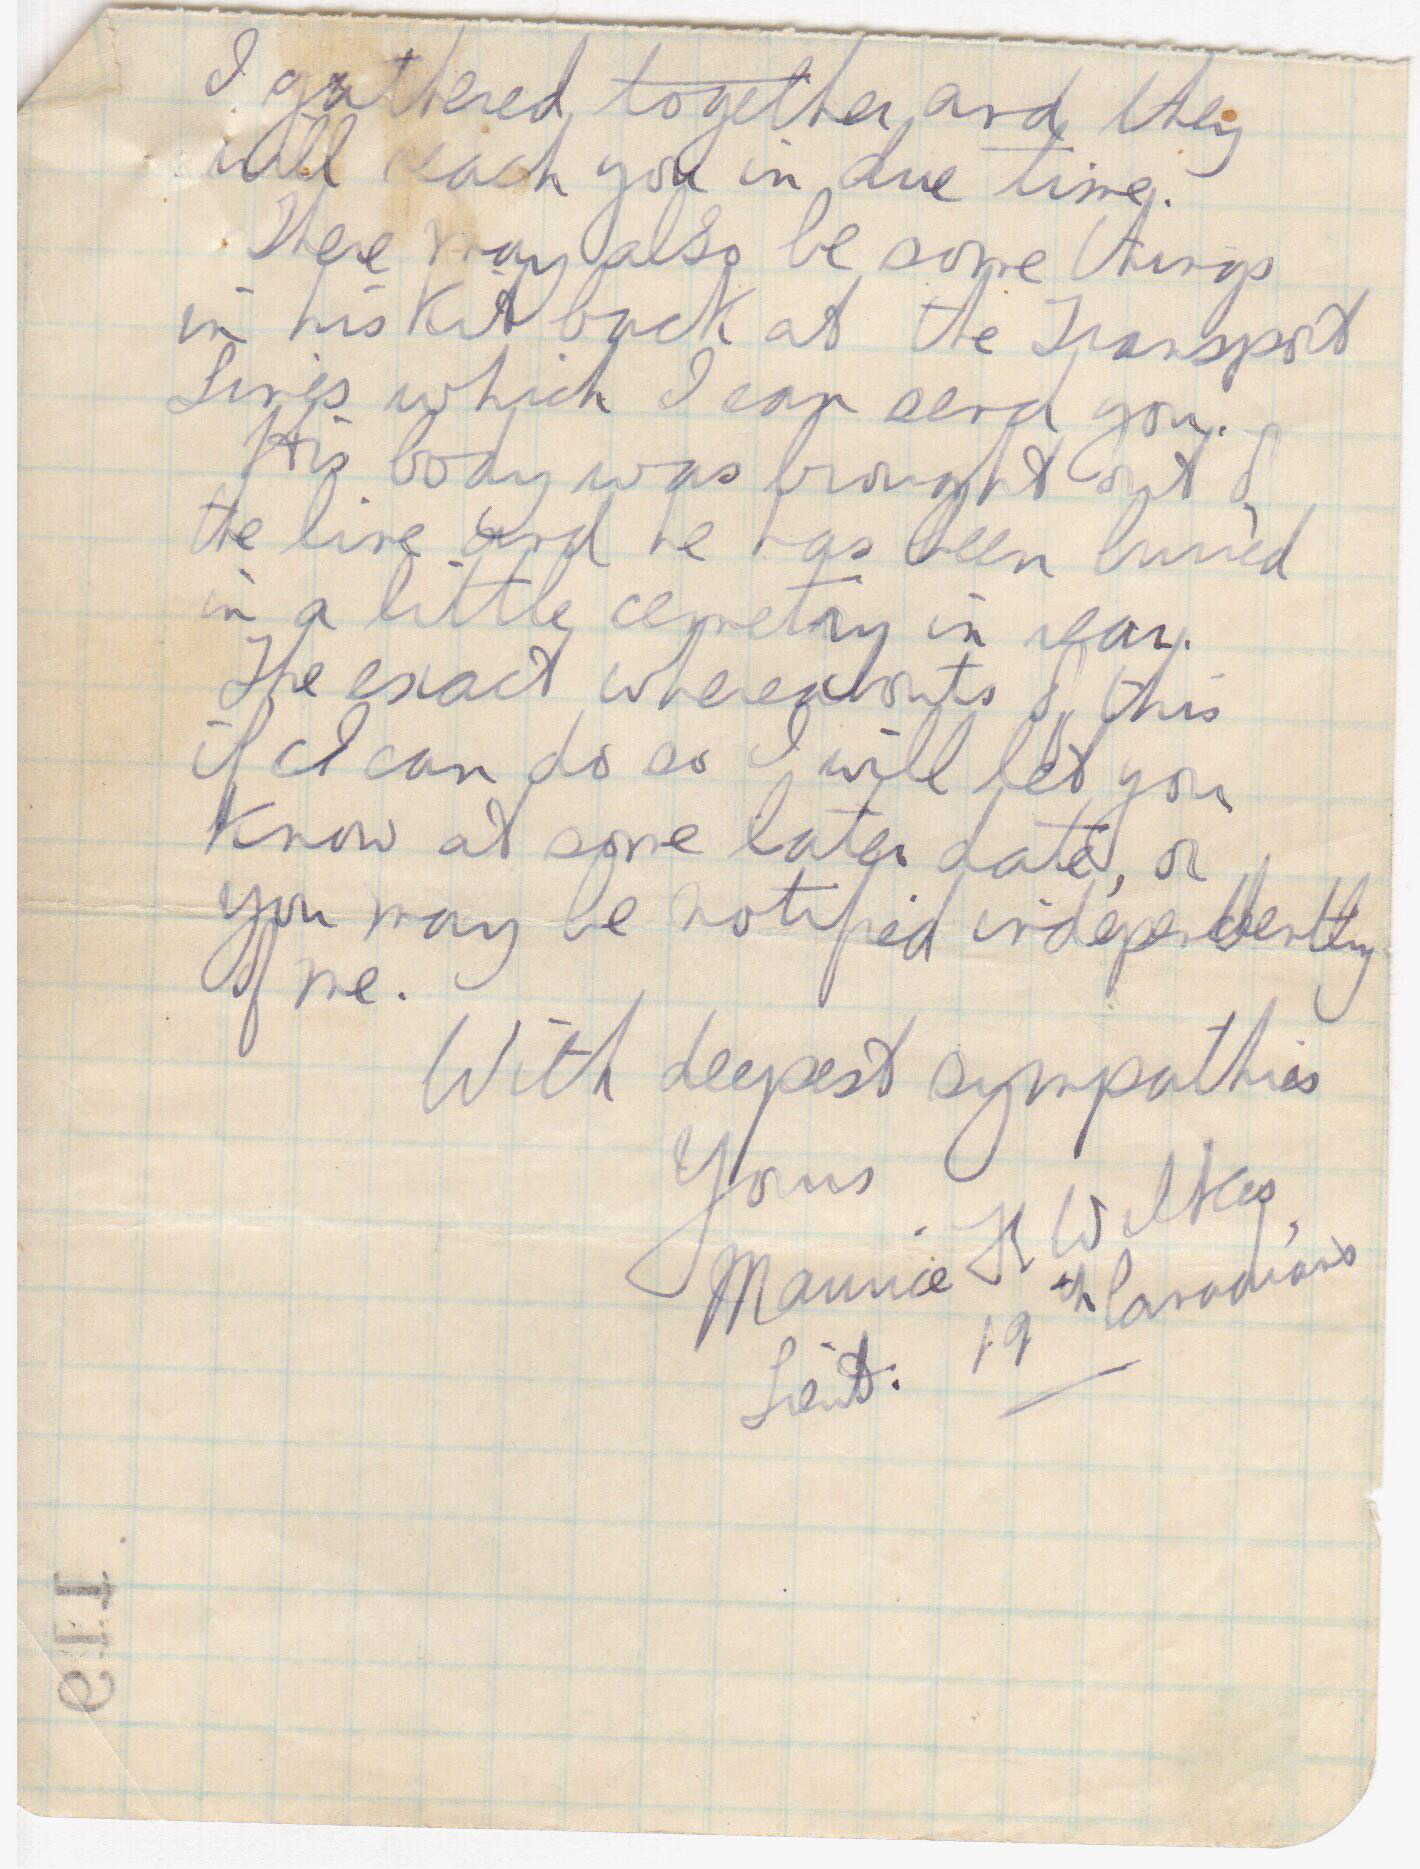 I gathered together and they
will reach you in due time.
There may also be some things
in his Kit back at the Transport
Lines which I can send you.
His body was brought out of
the line and he has been buried
in a little cemetry in rear.
The exact whereabouts of this
if I can do so I will let you
Know at some later date, or
you may be notified independently
of me.
With deepest sympathies
Yours
Maurice Wilkes,
Lieut. 19th Canadians
119